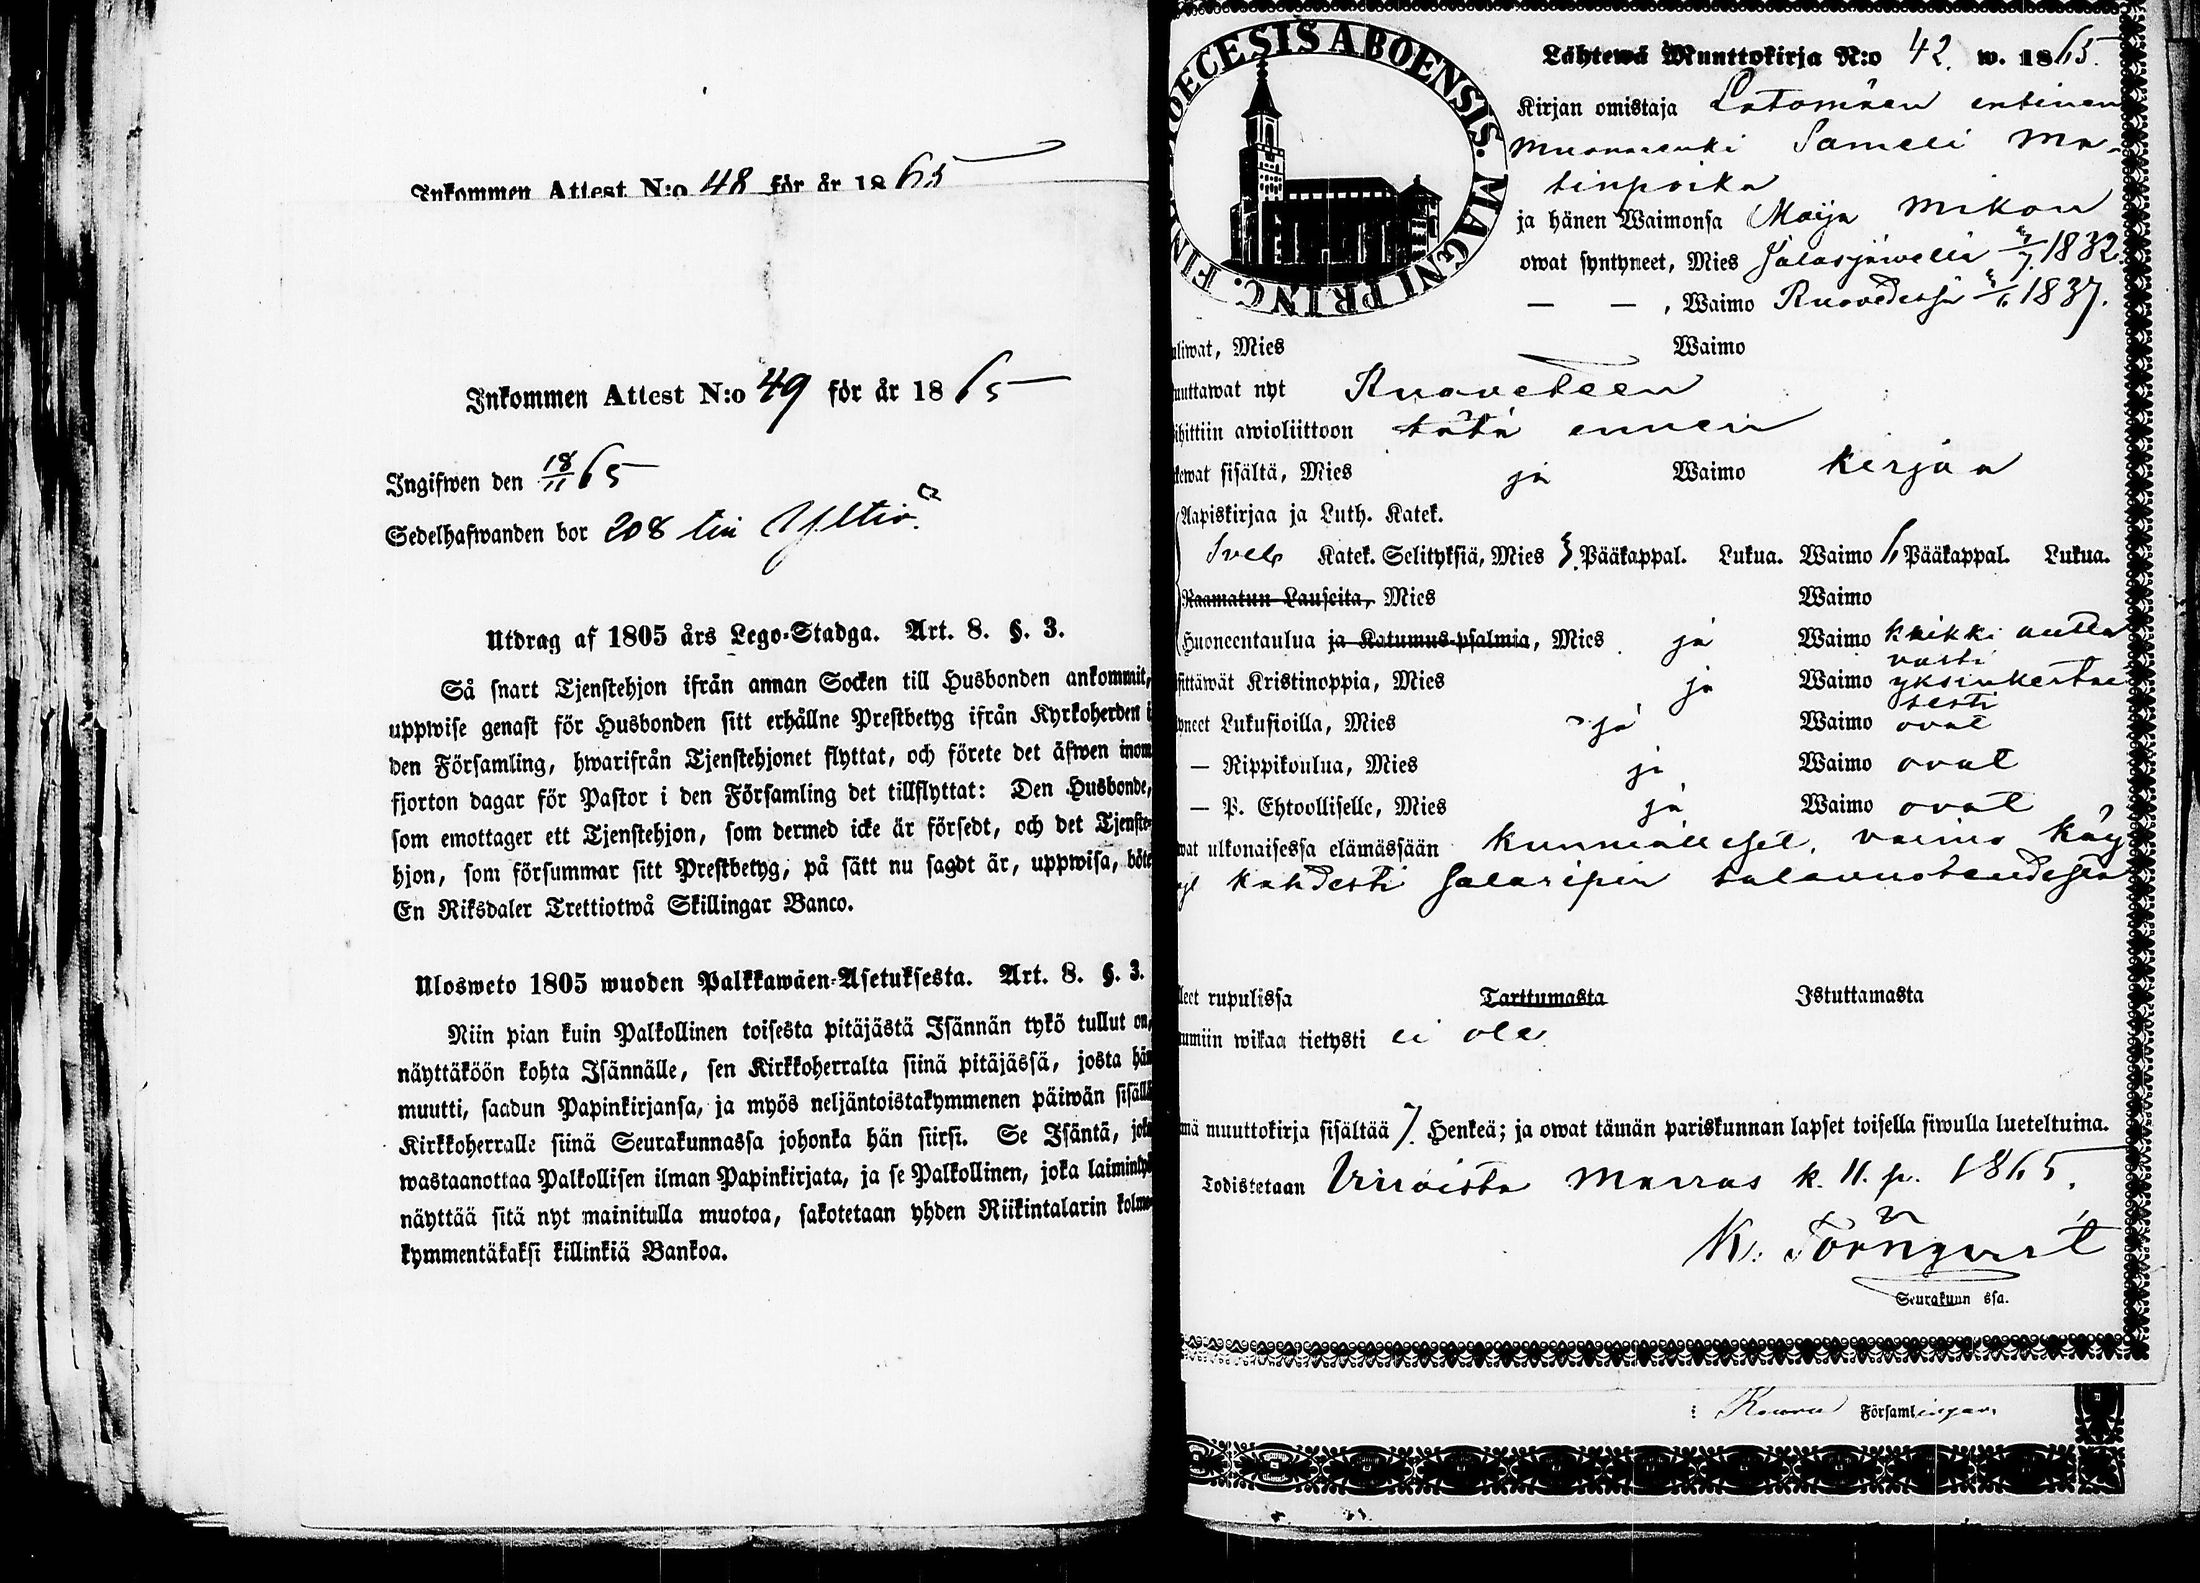 Inkommen Attest N:o 48 för år 1865
Inkommen Attest N:o 49 för år 1865
Ingifwen den 18/11 65
Sedelhafwanden bor 208 till Yltiö
Utdrag af 1805 års Lego-Stadga. Art. 8. §. 3.
Så snart Tjenstehjon ifrån annan Socken till Husbonden ankommit,
uppwise genast för Husbonden sitt erhållne Prestbetyg ifrån Kyrkoherden i
den Församling, hwarifrån Tjenstehjonet flyttat, och förete det äfwen inom
fjorton dagar för Pastor i den Församling det tillflyttat: Den Husbonde,
som emottager ett Tjenstehjon, som dermed icke är försedt, och det Tjenste-
hjon, som försummar sitt Prestbetyg, på sätt nu sagdt är, uppwisa, böte
En Riksdaler Trettiotwå Skillingar Banco.
Ulosweto 1805 wuoden Palkkawäen-Asetuksesta. Art. 8. §. 3.
Niin pian kuin Palkollinen toisesta pitäjästä Isännän tykö tullut on,
näyttäköön kohta Isännälle, sen Kirkkoherralta siinä pitäjässä, josta hän
muutti, saadun Papinkirjansa, ja myös neljäntoistakymmenen päiwän sisällä
Kirkkoherralle siinä Seurakunnassa johonka hän siirsi. Se Isäntä, joka
wastaanottaa Palkollisen ilman Papinkirjata, ja se Palkollinen, joka laimintyö
näyttää sitä nyt mainitulla muotoa, sakotetaan yhden Riikintalarin kolme-
kymmentäkaksi killinkiä Bankoa.
DIOECESIS ABOENSIS. MAGNI PRINC. FIN
Lähtewä Muuttokirja N:o 42. w. 1865.
Kirjan omistaja Latomäen entinen
muonarenki Sameli Ma-
tinpoika
ja hänen Waimonsa Maija Mikon
owat syntyneet, Mies Jalasjärvellä /7 1832.
— — , Waimo Ruovedessä /6 1837.
uliwat, Mies Waimo
muuttawat nyt Ruoveteen
ihittiin awioliittoon tätä ennen
kewat sisältä, Mies ja Waimo kirjaa
Aapiskirjaa ja Luth. Katek.
Sveb Katek. Selityksiä, Mies 3. Pääkappal. Lukua. Waimo 6 Pääkappal. Lukua.
Raamatun Lauseita, Mies Waimo
Huoneentaulua ja Katumus-psalmia, Mies ja Waimo kaikki autta
vasti
sittäwät Kristinoppia, Mies ja Waimo yksinkertai
sesti
yneet Lukusioilla, Mies ja Waimo ovat
— Rippikoulua, Mies ja Waimo ovat
— P. Ehtoolliselle, Mies ja Waimo ovat
wat ulkonaisessa elämässään kunnialliset, vaimo käy
nyt kahdesti salaripin salavuoteudesta
leet rupulissa Tarttumasta Istuttamasta
umiin wikaa tietysti ei ole
mä muuttokirja sisältää 7. Henkeä; ja owat tämän pariskunnan lapset toisella siwulla lueteltuina.
Todistetaan Virroista Marras k. 11. p. 1865.
K. Törnqvist
Seurakunn ssa.
i Församlingen.